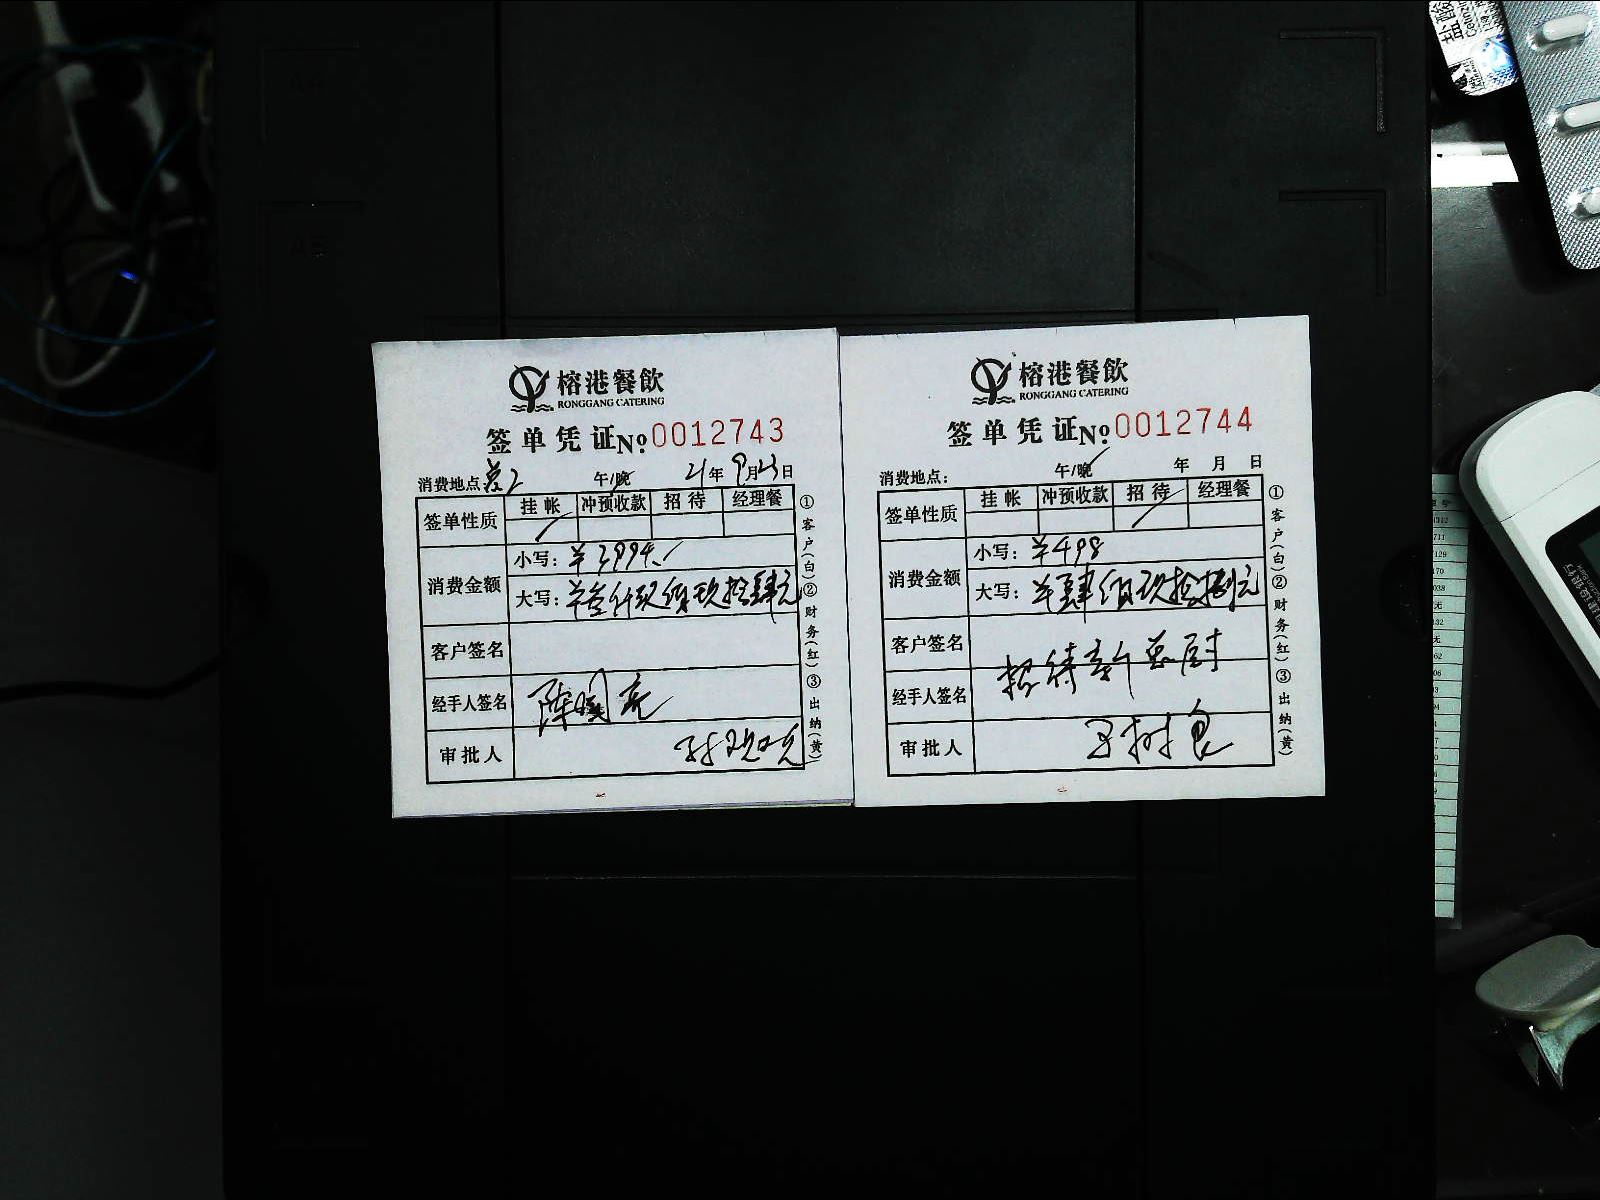 榕港餐飲
RONGGANG CATERING
签单凭证 No 0012743
消费地点 午/晚 21年9月23日
签单性质 挂帐 冲预收款 招待 经理餐
消费金额
小写: ¥1994.
大写: ¥壹仟玖佰玖拾肆元
客户签名
经手人签名 陈国亮
审批人
①客户(白)②财务(红)③出纳(黄)
榕港餐飲
RONGGANG CATERING
签单凭证 No 0012744
消费地点: 午/晚 年 月 日
签单性质 挂帐 冲预收款 招待 经理餐
消费金额
小写: ¥498
大写: ¥肆佰玖拾捌元
客户签名
招待新总厨
经手人签名
审批人 王树良
①客户(白)②财务(红)③出纳(黄)